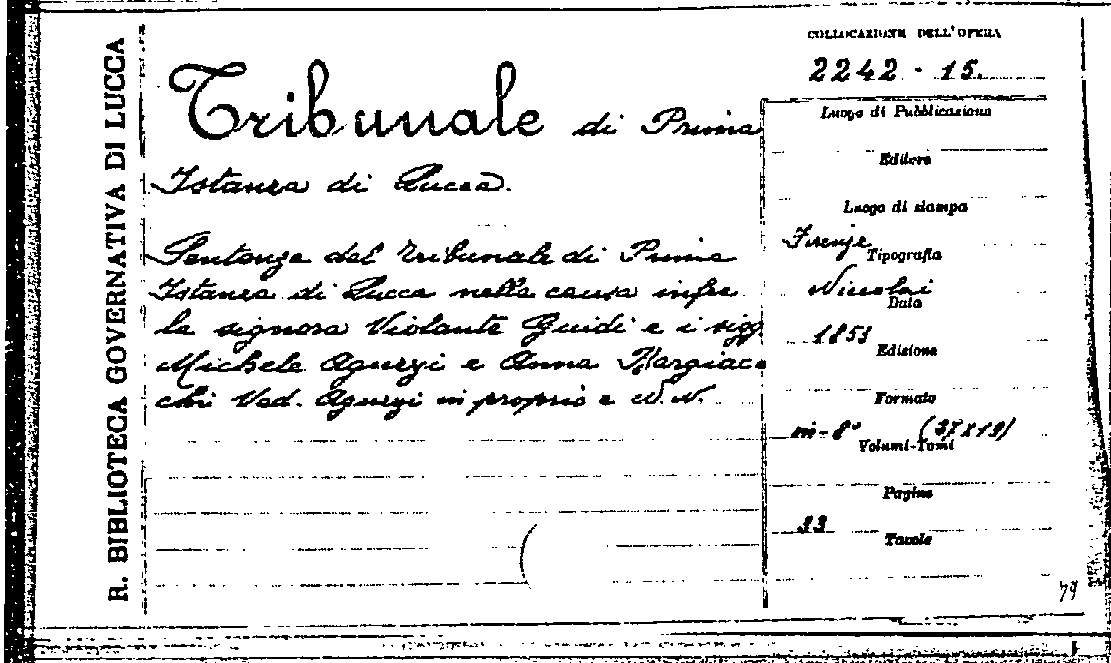 R. BIBLIOTECA GOVERNATIVA DI LUCCA
Tribunale di Prima
Istanza di Lucca.
Sentenza del Tribunale di Prima
Istanza di Lucca nella causa infra
la signora Violante Guidi e i sigg.
Michele Agurzi e Anna
chi Ved. Agurzi in proprio e N. N.
COLLOCAZIONE DELL'OPERA
2242 - 15.
Luogo di Pubblicazione
Editore
Luogo di stampa
Firenze
Tipografia
Niccolai
Data
1853
Edizione
Formato
in-8° (27X19)
Volumi-Tomi
Pagine
33
Tavole
79